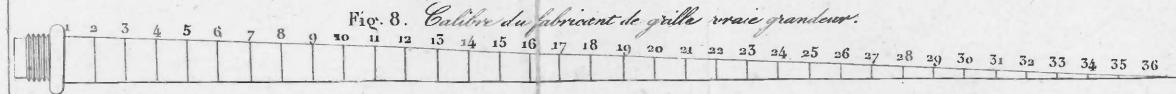 Fig. 8. Calibre du fabricant de grille vraie grandeur.
1 2 3 4 5 6 7 8 9 10 11 12 13 14 15 16 17 18 19 20 21 22 23 24 25 26 27 28 29 30 31 32 33 34 35 36